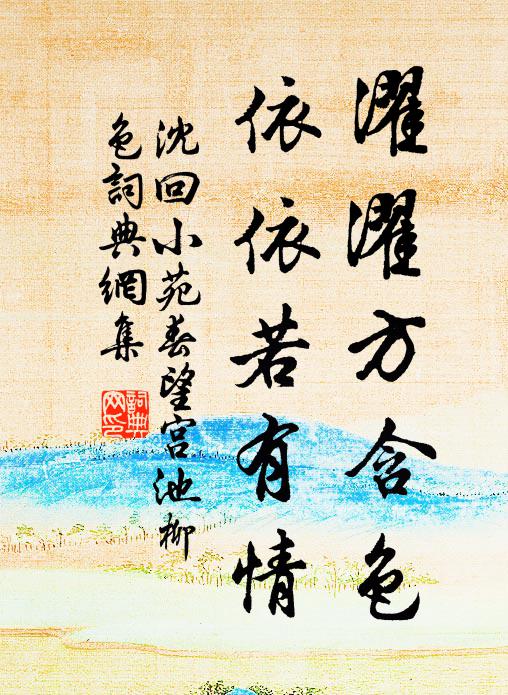 濯濯方含色
依依若有情
沈回小苑春望宫池柳
色詞典網集
詞典
网印